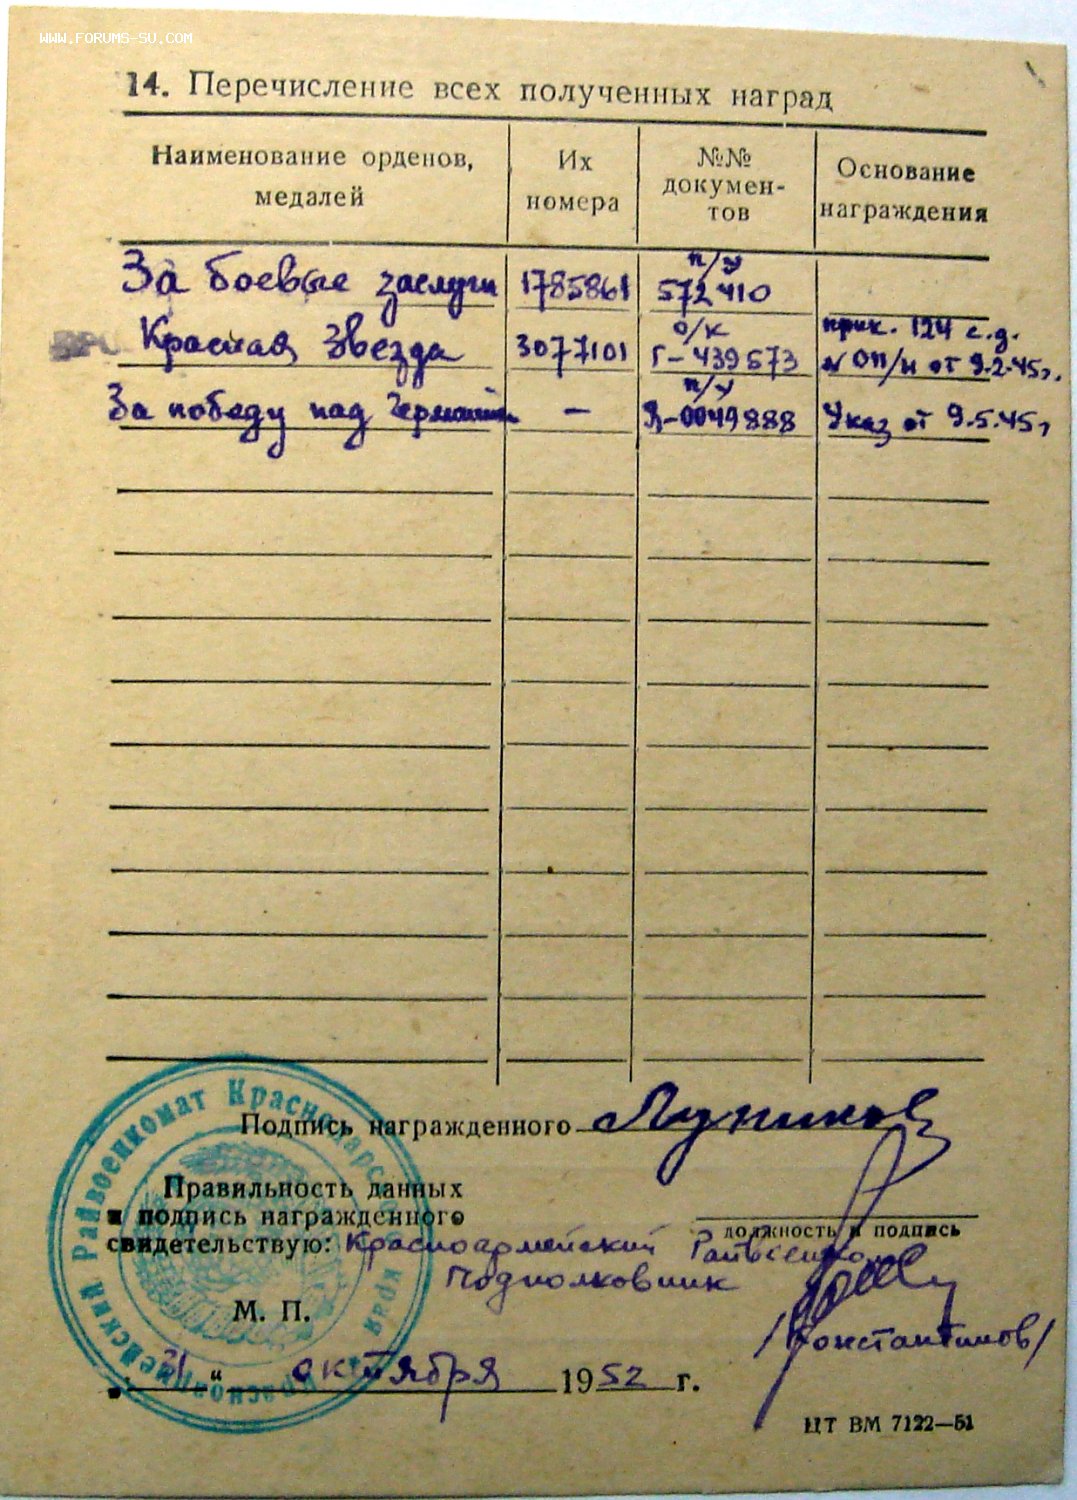 WWW.FORUMS-SU.COM
14. Перечисление всех полученных наград
Наименование орденов, медалей
Их номера
№№ докумен-тов
Основание награждения
За боевые заслуги 1785861 п/у 572410
Красная Звезда 3077101 о/к Г-439573 прик. 124 с.д. N ОП/Н от 9.2.45г.
За победу над Германией — п/у Я-0049888 Указ от 9.5.45г
Подпись награжденного
Правильность данных
и подпись награжденного
должность и подпись
свидетельствую: Красноармейский Райвоенком
Подполковник
М. П.
/Константинов/
31 " октября 1952 г.
ЦТ ВМ 7122—51
Красноармейский Райвоенкомат Краснодарского края